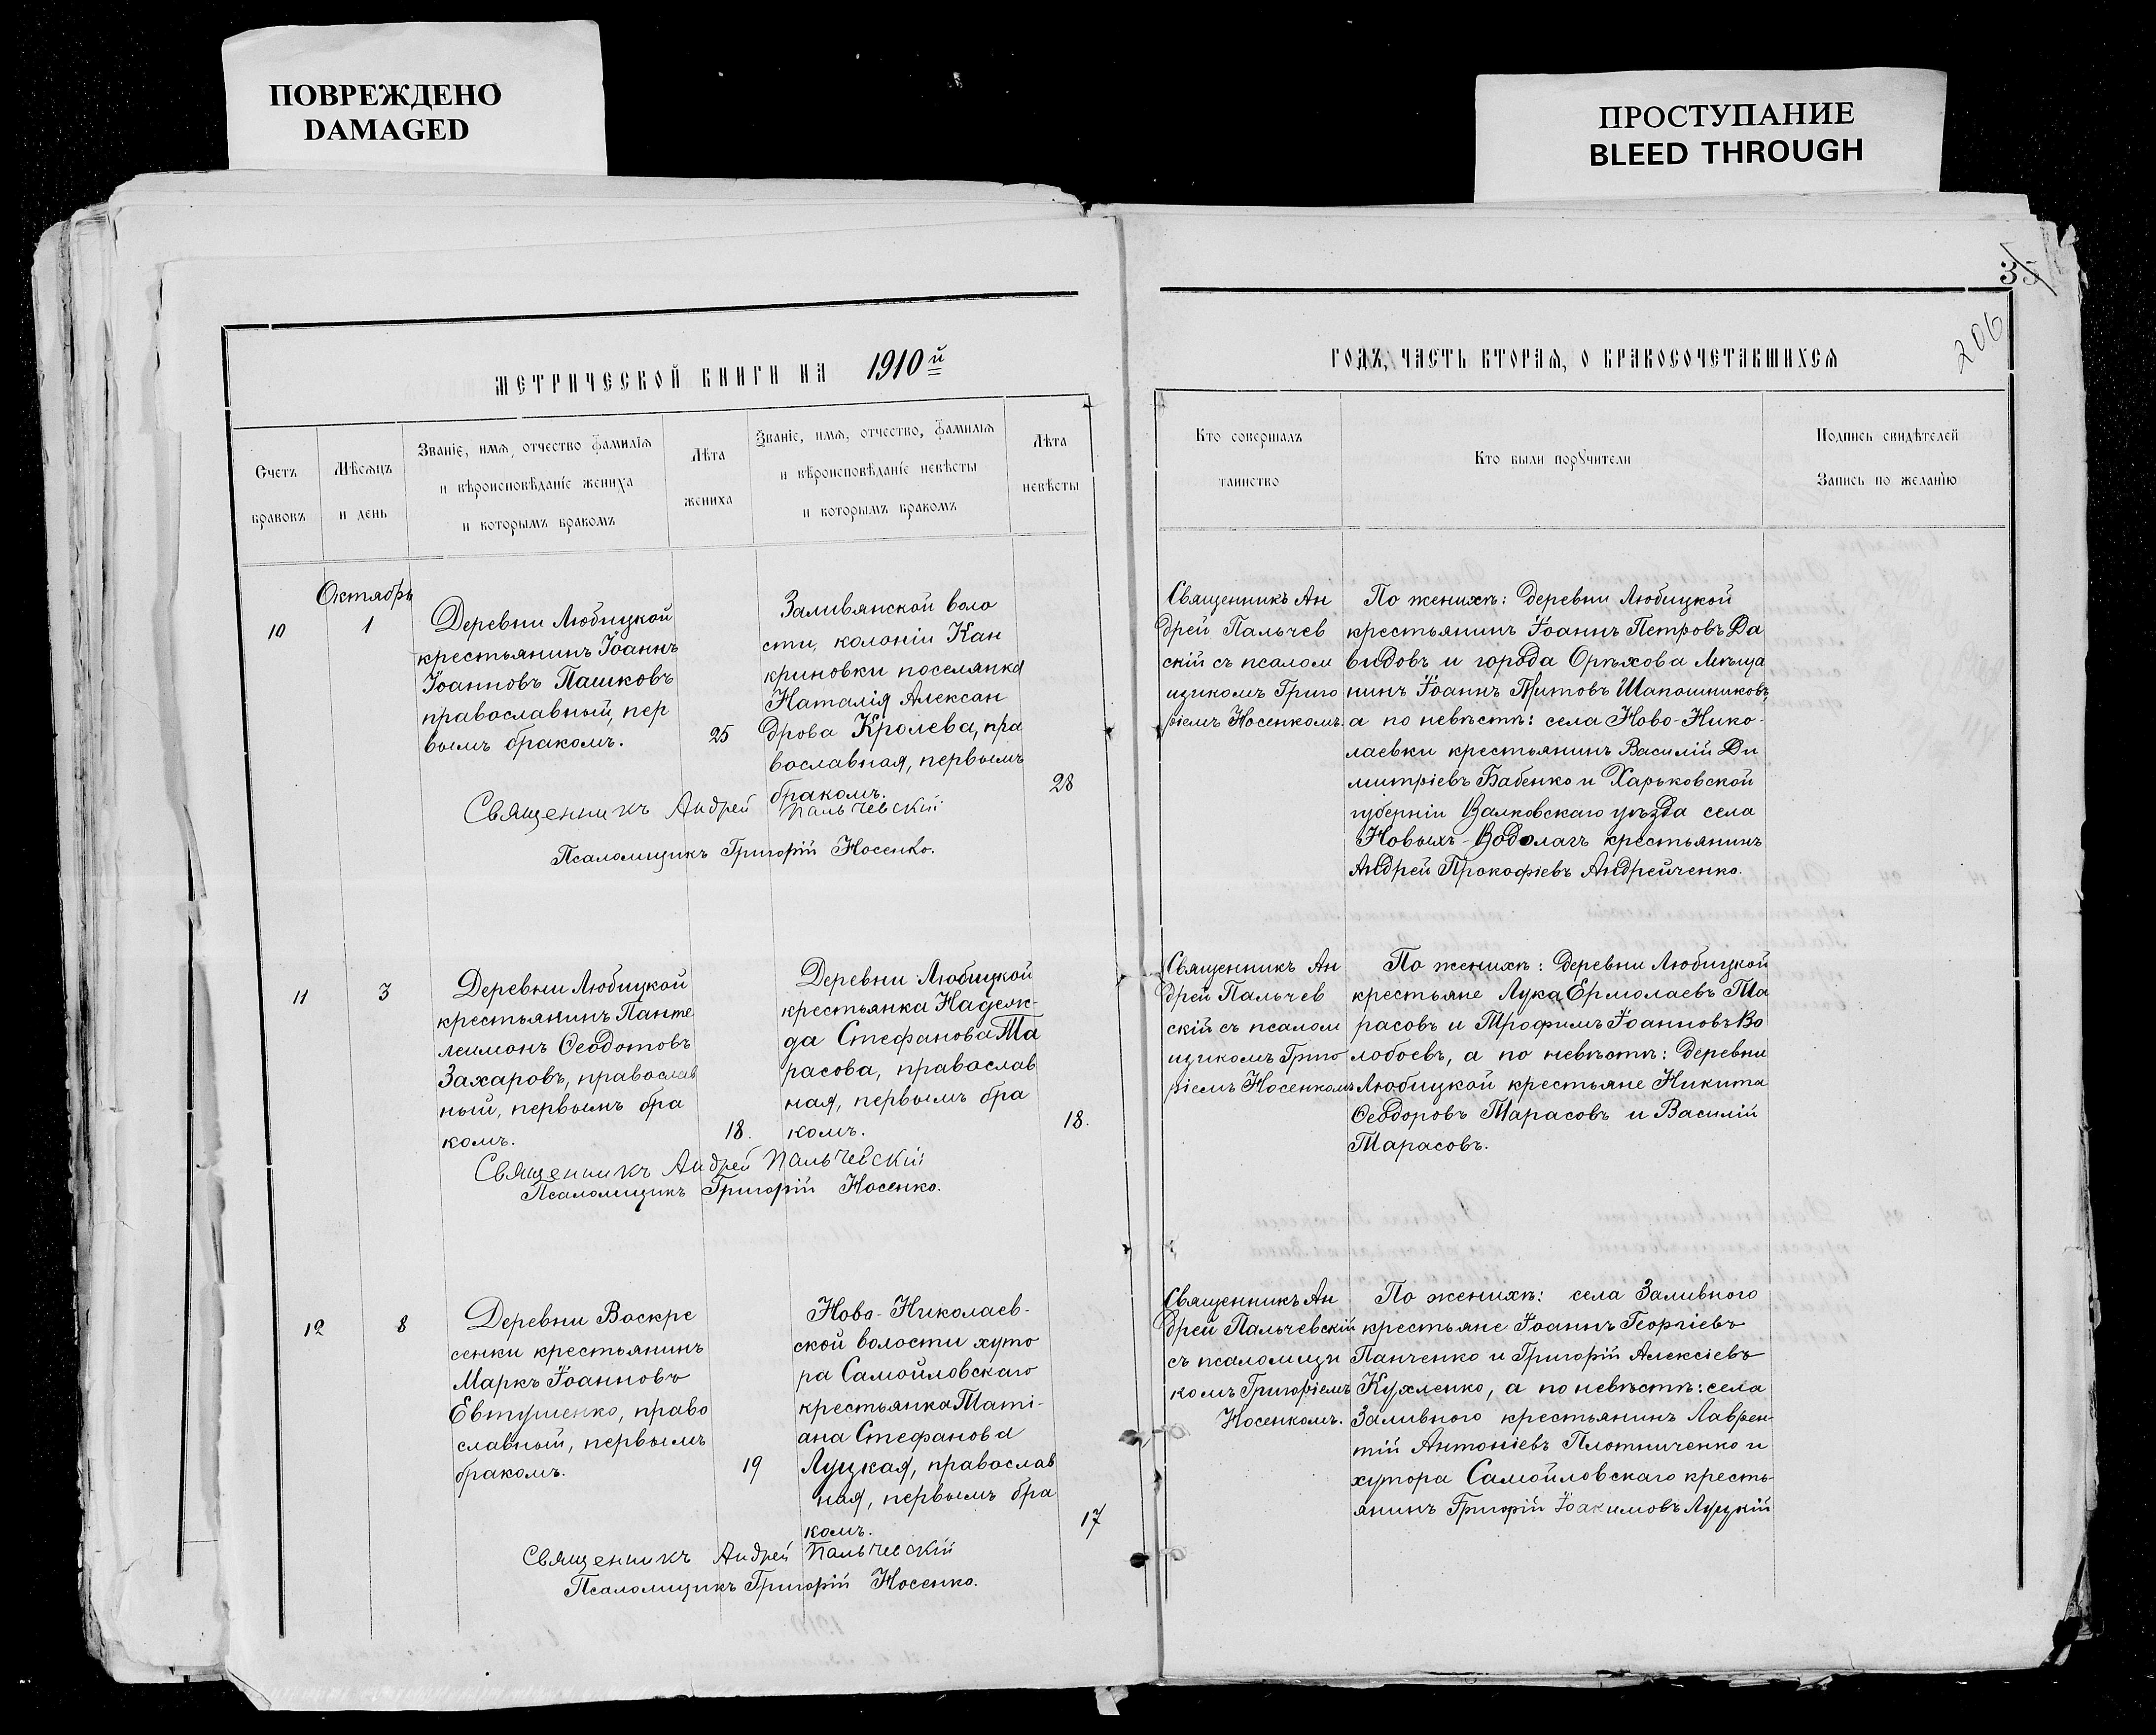 ПОВРЕЖДЕНО
DAMAGED
ПРОСТУПАНИЕ
BLEED THROUGH
35
206
МЕТРИЧЕСКОЙ КНИГИ НА 1910й
ГОДЪ, ЧАСТЬ ВТОРАЯ, О БРАКОСОЧЕТАВШИХСЯ
Счетъ
браковъ
Мѣсяцъ
и день
Званіе, имя, отчество фамилія
и вѣроисповѣданіе жениха
и которымъ бракомъ
Лѣта
жениха
Званіе, имя, отчество, фамилія
и вѣроисповѣданіе невѣсты
и которымъ бракомъ
Лѣта
невѣсты
Кто совершалъ
таинство
Кто были поручители
Подпись свидѣтелей
Запись по желанію
Октябрь
10
1
Деревни Любицкой
крестьянинъ Іоаннъ
Іоанновъ Пашковъ
православный, пер
вымъ бракомъ.
25
Заливянской воло
сти, колоніи Кан
криновки поселянка
Наталія Алексан
дрова Кролева, пра
вославная, первымъ
бракомъ.
28
Священникъ Андрей Пальчевскій
Псаломщикъ Григорій Носенко.
Священникъ Ан
дрей Пальчев
скій съ псалом
щикомъ Григо
ріемъ Носенкомъ.
По женихѣ: деревни Любицкой
крестьянинъ Іоаннъ Петровъ Да
видовъ и города Орѣхова мѣща
нинъ Іоаннъ Титовъ Шапошниковъ,
а по невѣстѣ: села Ново-Нико-
лаевки крестьянинъ Василій Ди
митріевъ Бабенко и Харьковской
губерніи Валковскаго уѣзда села
Новыхъ-Водолагъ крестьянинъ
Андрей Прокофіевъ Андрейченко.
11
3
Деревни Любицкой
крестьянинъ Панте
леимонъ Ѳеодотовъ
Захаровъ, православ
ный, первымъ бра
комъ.
18.
Деревни Любицкой
крестьянка Надеж-
да Стефанова Та
расова, православ
ная, первымъ бра
комъ.
18.
Священникъ Андрей Пальчевскій
Псаломщикъ Григорій Носенко.
Священникъ Ан
дрей Пальчев
скій съ псалом
щикомъ Григо
ріемъ Носенкомъ
По женихѣ: деревни Любицкой
крестьяне Лука Ермолаевъ Та
расовъ и Трофимъ Іоанновъ Во
лобоевъ, а по невѣстѣ: деревни
Любицкой крестьяне Никита
Ѳеодоровъ Тарасовъ и Василій
Тарасовъ.
12
8
Деревни Воскре
сенки крестьянинъ
Маркъ Іоанновъ
Евтушенко, право
славный, первымъ
бракомъ.
19
Ново-Николаев-
ской волости хуто
ра Самойловскаго
крестьянка Тати-
ана Стефанова
Луцкая, православ
ная, первымъ бра
комъ.
17
Священникъ Андрей Пальчевскій
Псаломщикъ Григорій Носенко.
Священникъ Ан
дрей Пальчевскій
съ псаломщи
комъ Григоріемъ
Носенкомъ.
По женихѣ: села Заливного
крестьяне Іоаннъ Георгіевъ
Панченко и Григорій Алексіевъ
Кухленко, а по невѣстѣ: села
Заливного крестьянинъ Лаврен-
тій Антоніевъ Плотниченко и
хутора Самойловскаго кресть-
янинъ Григорій Іоакимовъ Луцкій